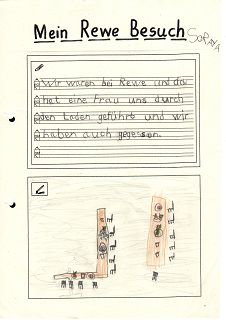 Mein Rewe Besuch
SORAYA
Wir waren bei Rewe und da
hat eine Frau uns durch
den Laden geführt und wir
haben auch gegessen.